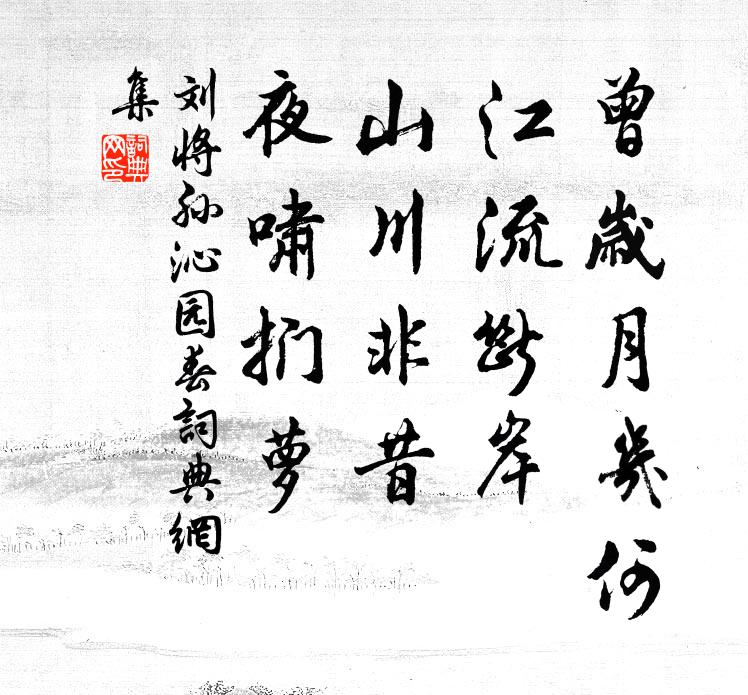 曾歲月幾何
江流斷岸
山川非昔
夜嘯捫蘿
刘將孙沁园春詞典網
集
詞典
网印